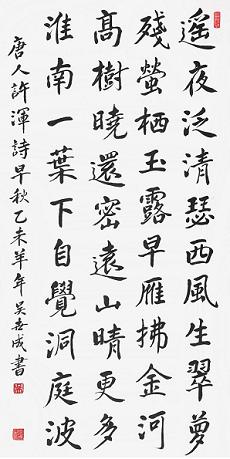 遙夜泛清瑟西風生翠夢
殘螢栖玉露早雁拂金河
高樹曉還密遠山晴更多
淮南一葉下自覺洞庭波
唐人許渾詩早秋乙未羊年吴成書